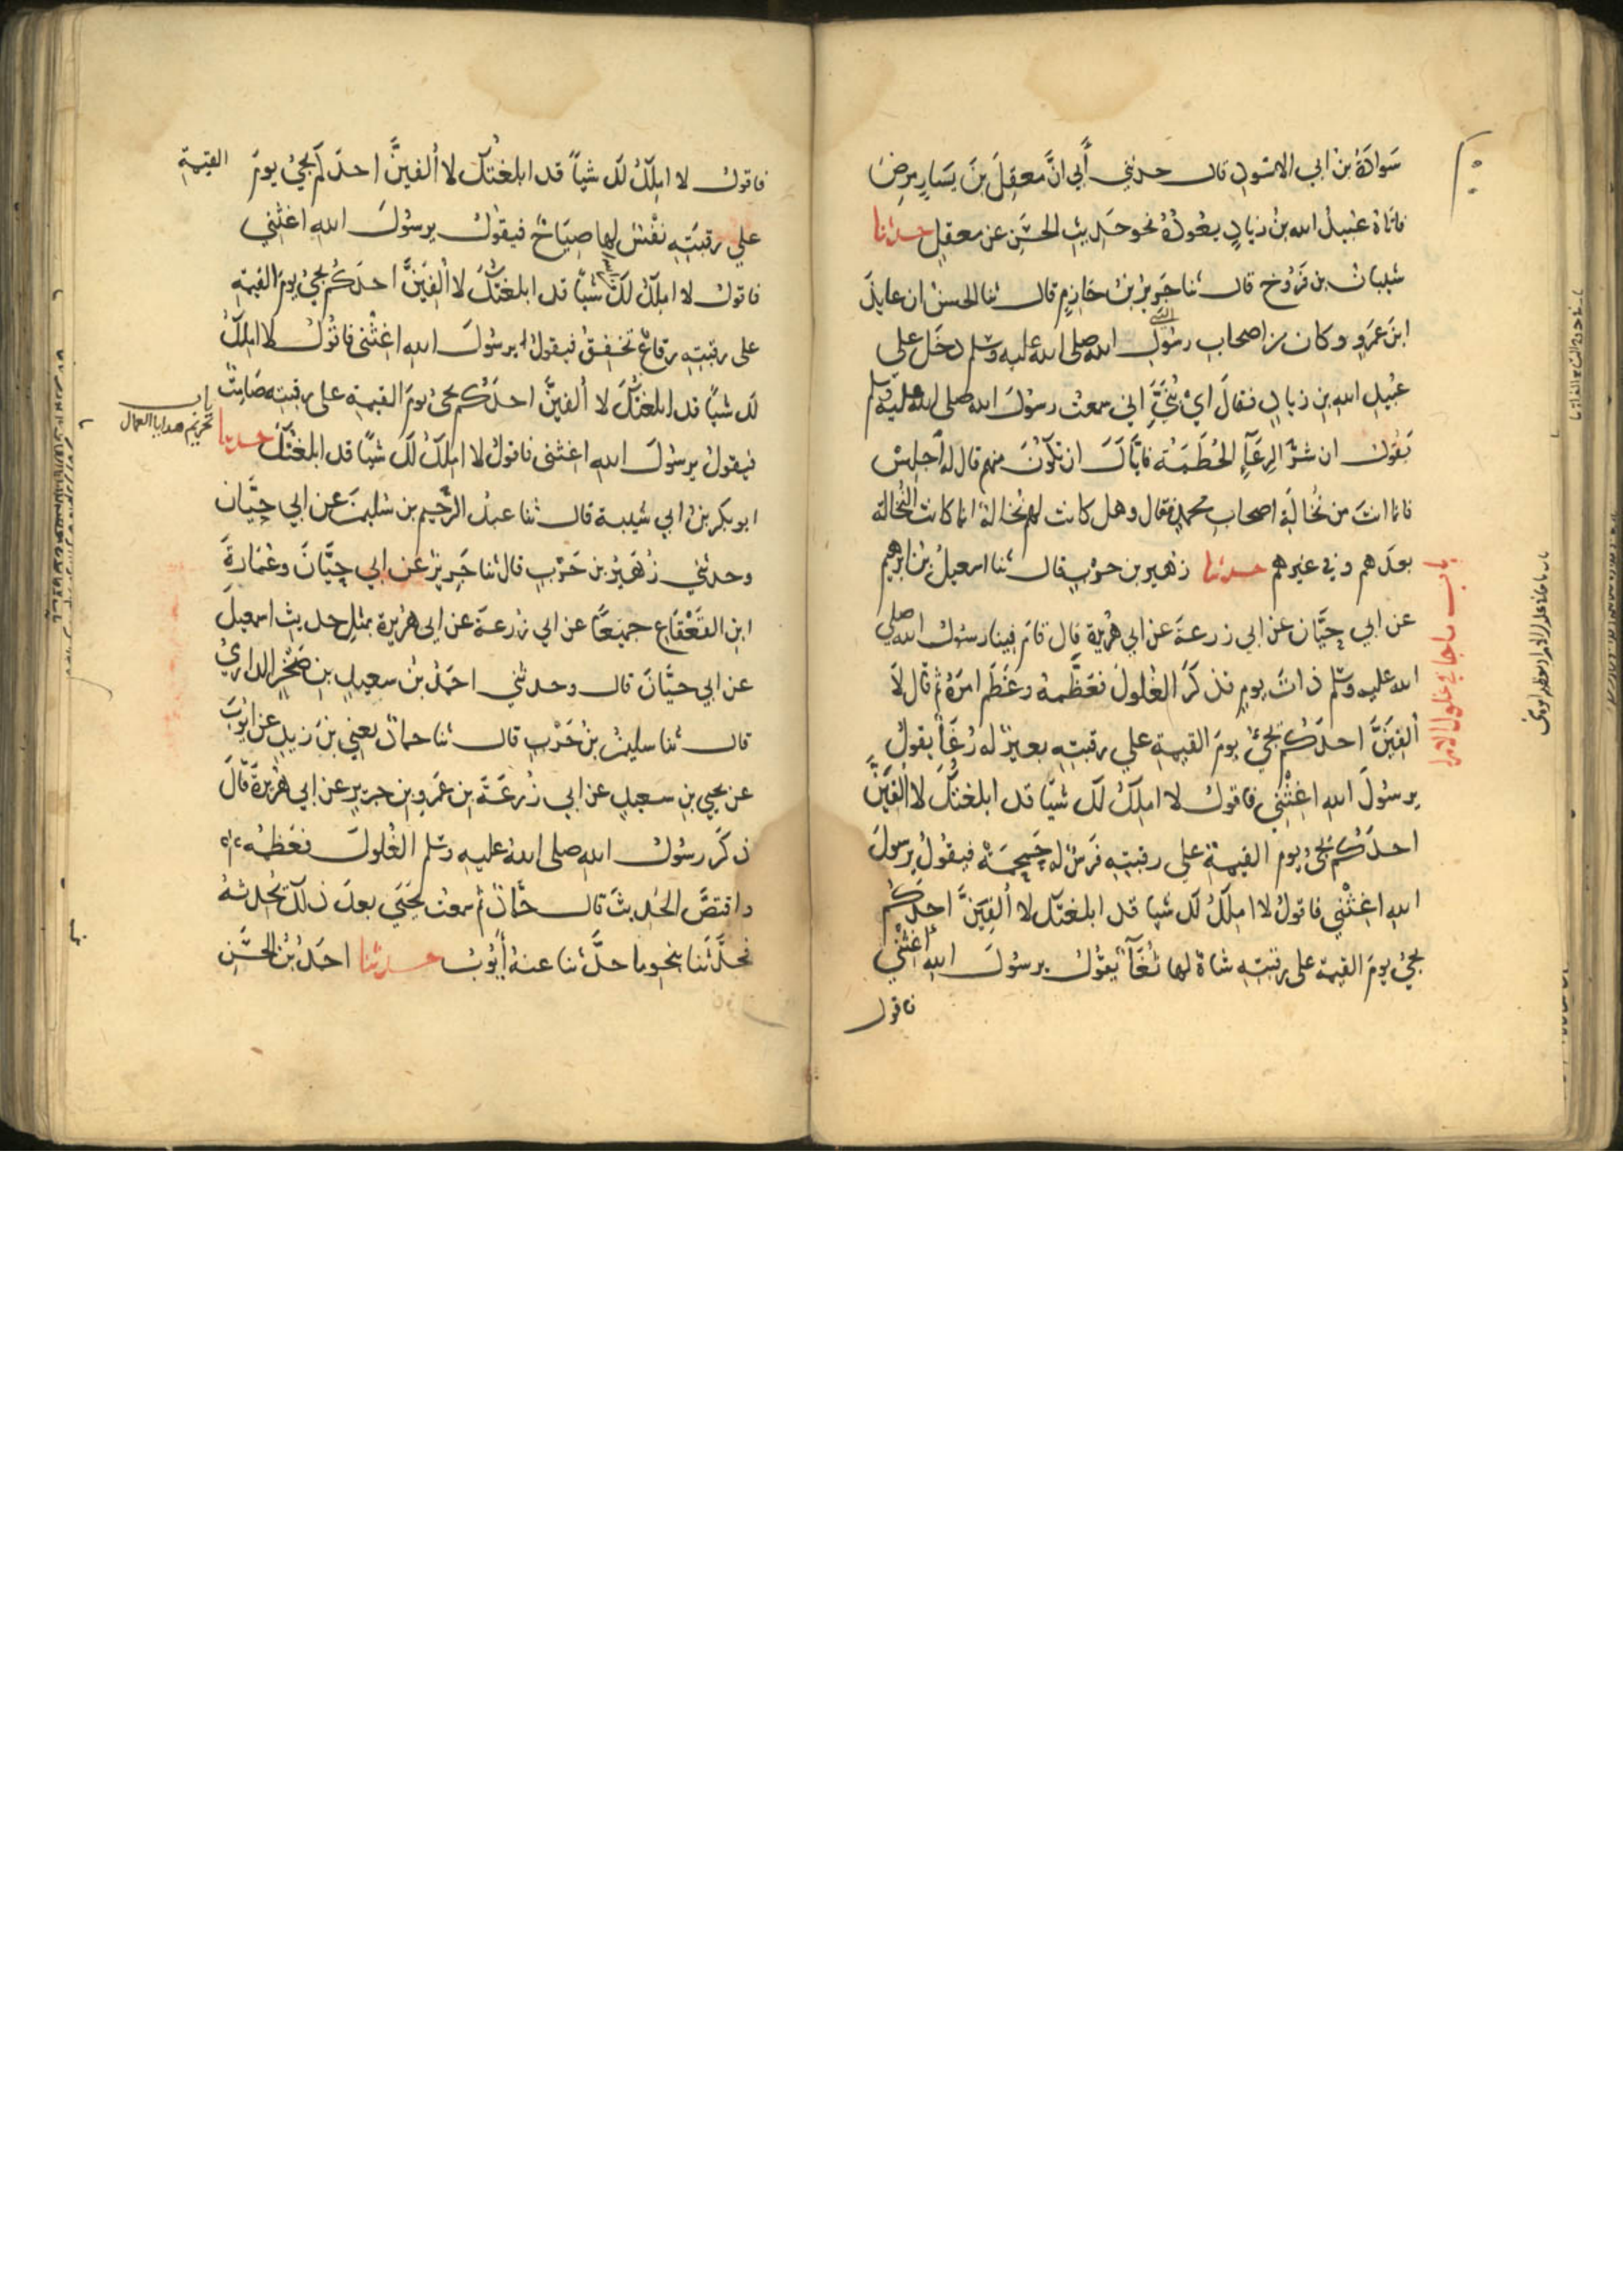 سَوادَةُ بنُ ابي الاسود قال حدثني أبي انَّ مَعقِلَ بنَ يَسَارٍ مرِضَ
فاتاهُ عُبيدُ الله بنُ زيادٍ يعُودُهُ نحو حَديثِ الحسَنِ عن معقلٍ حدثنا
شيبان بن فرُّوخ قال ثنا جَريرُ بنُ حَازِمٍ قال ثنا الحسنُ ان عايذَ
ابنَ عَمرٍو وكان من اصحاب رسُولِ الله صلى الله عليه وسلم دخَل على
عُبيدِ اللهِ بن زيادٍ فقالَ ايْ بُنيَّ اني سمعت رسُولَ الله صلى الله عليه وسلم
يَقُول ان شرَّ الرِعَآءِ الحُطَمَة فايَّاكَ ان تكُونَ منهم قال له اجلِسْ
فانما انتَ من نُخَالَةِ اصحاب محمدٍ فقال وهل كانت لهم نُخالة انما كانت النُخالة
بعدَهم وفي غيرهم حدثنا زهير بن حربٍ قال ثنا اسمعيلُ بنُ ابرهيم
عن ابي حيَّان عن ابي زرعةَ عن ابي هريرة قال قامَ فينا رسُول الله صلى
الله عليه وسلم ذاتَ يومٍ فذكرَ الغُلولَ فعَظَّمهُ وعَظَّم امرَهُ ثم قال لا
ألفينَّ احدَكُم يجيءُ يومَ القيمةِ علي رقبتِهِ بعيرٌ له رُغَآءٌ يقولُ
يرسُولَ اللهِ اغِثْنِي فاقول لا املِكُ لكَ شيًا قد ابلغتُكَ لا الفيَنَّ
احدَكُم يجيءُ يومَ القيمةِ علي رقبتِهِ فرَسٌ له حَمحمَةٌ فيقُولُ يرسولَ
اللهِ اغِثْني فاقولُ لا املِكُ لكَ شيا قد ابلغتك لا ألفيَنَّ احدَكُم
يجيُ يومَ القيمة على رقبتِهِ شاةٌ لها ثُغَآءٌ يقُول يرسُولَ اللهِ اغثني
فاقول
باب ما جا في غلول الامرا
فاقول لا املِكُ لكَ شياً قد ابلغتُكَ لا ألفينَّ احدكم يجيُ يومَ القيمةِ
علي رقبَتِهِ نفْسٌ لها صِيَاحٌ فيقُول يرسُولَ اللهِ اغثني
فاقول لا املِكُ لكَ شيًا قد ابلغتُكَ لا الفَيَنَّ احدَكُم يجيُ يومَ القيمةِ
على رقبتِهِ رِقاعٌ تخفِقُ فيقول يرسُولَ اللهِ اغِثْني فاقُولُ لا املِكُ
لك شيًا قد ابلغتُكَ لا ألفينَّ احدَكُم يجيُ يومَ القيمةِ على رقبتِهِ صَامِتٌ
فيقولُ يرسُولَ اللهِ اغثني فاقولُ لا املِكُ لكَ شيًا قد ابلغتُكَ حدثنا
ابو بكر بن ابي شيبة قال ثنا عبدُ الرَّحيم بن سُليمن عن ابي حيَّان
وحدثني زُهَيرُ بن حَرْبٍ قال ثنا جَريرٌ عن ابي حيَّانَ وعُمَارةَ
ابنِ القَعْقَاعِ جميعًا عن ابي زرعةَ عن ابي هُريرة بمثلِ حديثِ اسمعيلَ
عن ابي حيَّانَ قال وحدثني احمدُ بنُ سعيدٍ بنِ صَخْرٍ الدارميُّ
قال ثنا سليمنُ بنُ حَرْبٍ قال ثنا حمادٌ يعني بنَ زيدٍ عن ايُّوبَ
عن يحيي بنِ سعيدٍ عن ابي زُرعَةَ بن عَمرِو بن جريرٍ عن ابي هُريرَةَ قالَ
ذكرَ رسُول اللهِ صلى اللهُ عليهِ وسَلم الغُلولَ فعَظمهُ
واقتصَّ الحَديثَ قال حمَّادٌ ثم سمعتُ يَحيَي بعدَ ذلك يُحَدثهُ
فحدَّثَنا بنحوِ ما حدَّثنا عنهُ أيُّوبُ حدثنا احمَدُ بنُ الحسَنِ
باب
تحريم هدايا العمال